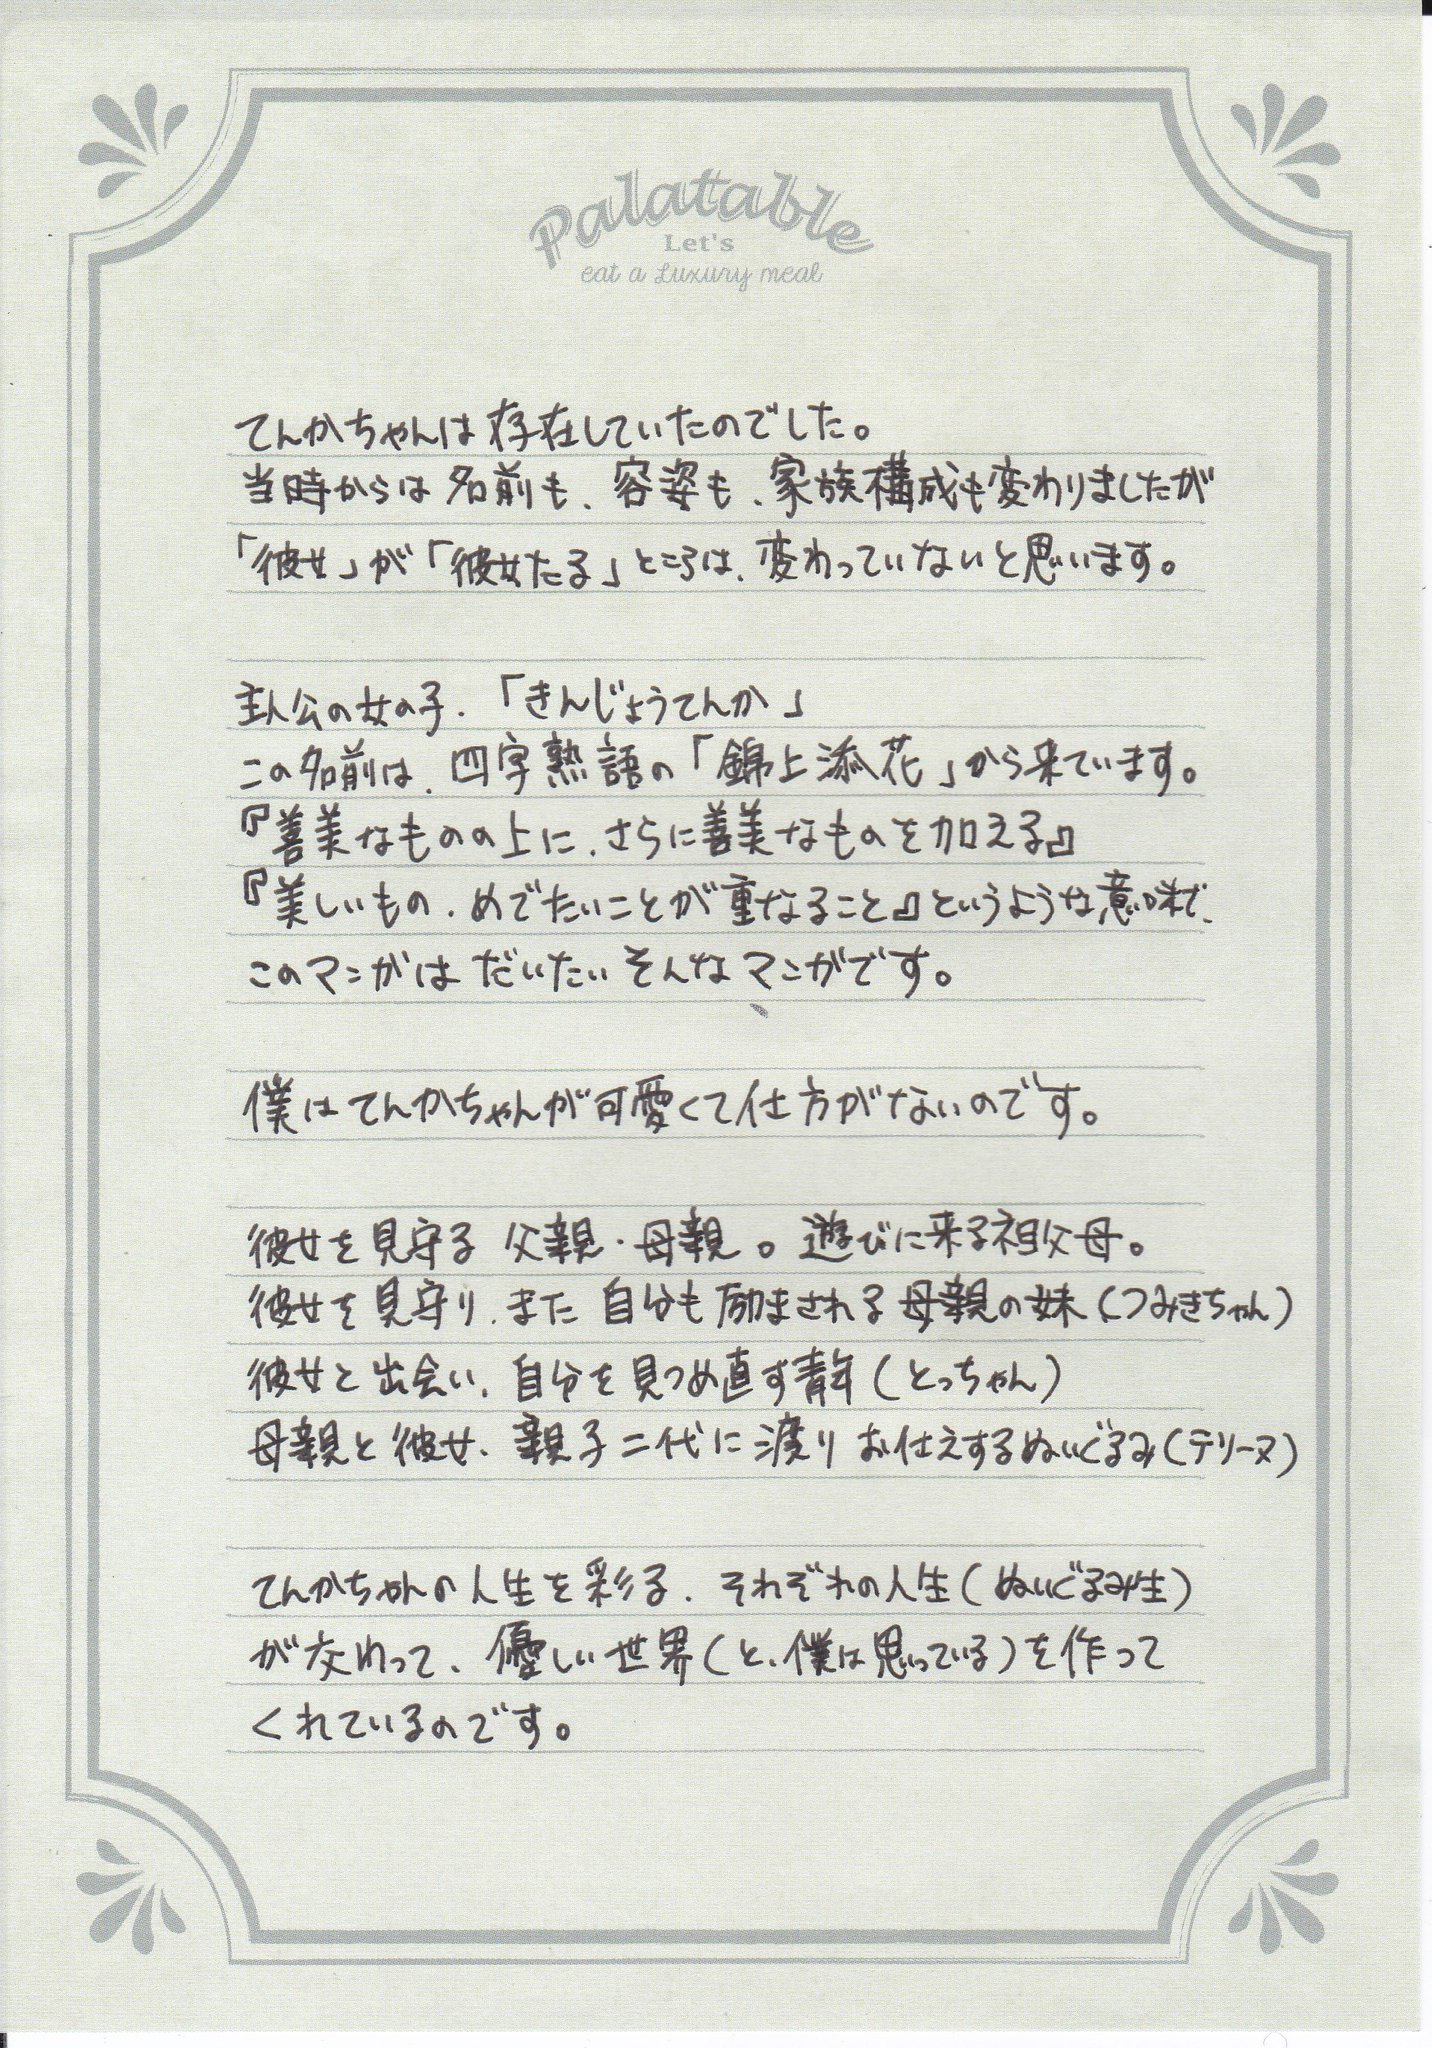 Palatable
Let's
eat a Luxury meal
てんかちゃんは存在していたのでした。
当時からは名前も、容姿も、家族構成も変わりましたが
「彼女」が「彼女たる」ところは、変わっていないと思います。
主人公の女の子、「きんじょうてんか」
この名前は、四字熟語の「錦上添花」から来ています。
『善美なものの上に、さらに善美なものを加える』
『美しいもの、めでたいことが重なること』というような意味で、
このマンガはだいたいそんなマンガです。
僕はてんかちゃんが可愛くて仕方がないのです。
彼女を見守る父親・母親。遊びに来る祖父母。
彼女を見守り、また自分も励まされる母親の妹(つみきちゃん)
彼女と出会い、自分を見つめ直す青年(とっちゃん)
母親と彼女、親子二代に渡りお仕えするぬいぐるみ(テリーヌ)
てんかちゃんの人生を彩る、それぞれの人生(ぬいぐるみ生)
が交わって、優しい世界(と、僕は思っている)を作って
くれているのです。